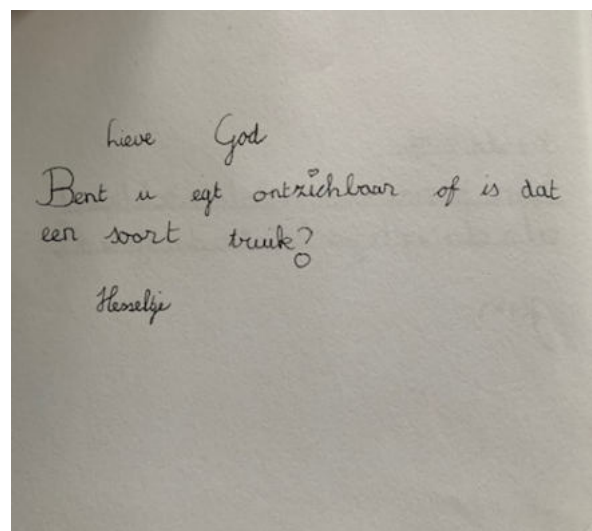 Lieve God
Bent u egt ontzichbaar of is dat
een soort truuk?
Hesseltje